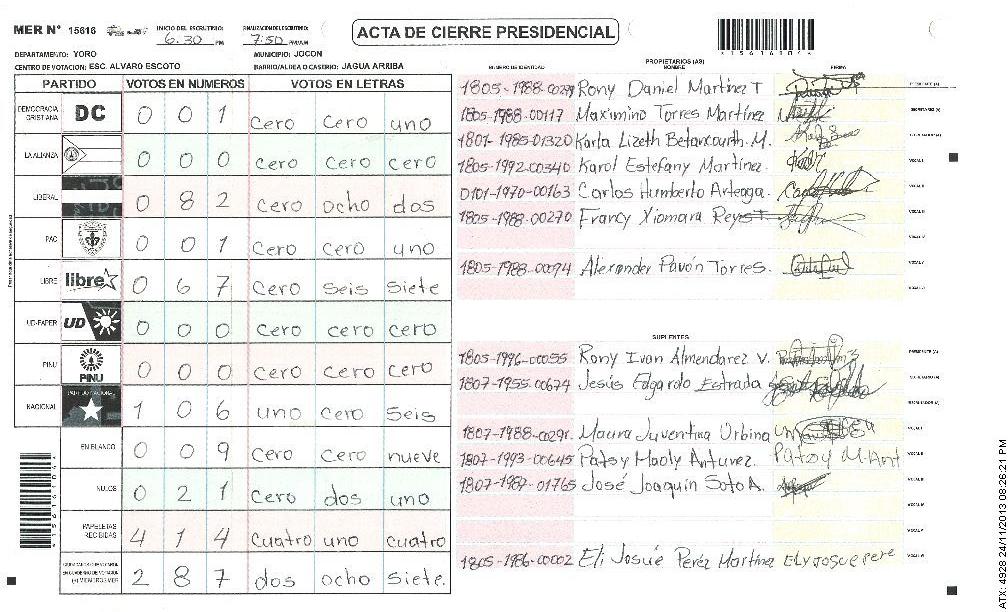 MER Nº 15616
INICIO DEL ESCRUTINIO: 6.30 PM
FINALIZACION DEL ESCRUTINIO: 7:50 PM/AM
ACTA DE CIERRE PRESIDENCIAL
DEPARTAMENTO: YORO
MUNICIPIO: JOCON
CENTRO DE VOTACION: ESC. ALVARO ESCOTO
BARRIO/ALDEA O CASERIO: JAGUA ARRIBA
PARTIDO VOTOS EN NUMEROS VOTOS EN LETRAS
DEMOCRACIA CRISTIANA DC 0 0 1 cero cero uno
LA ALIANZA 0 0 0 cero cero cero
LIBERAL 0 8 2 cero ocho dos
PAC 0 0 1 cero cero uno
LIBRE libre 0 6 7 cero seis siete
UD-FAPER UD 0 0 0 cero cero cero
PINU PINU 0 0 0 cero cero cero
NACIONAL 1 0 6 uno cero seis
EN BLANCO 0 0 9 cero cero nueve
NULOS 0 2 1 cero dos uno
PAPELETAS RECIBIDAS 4 1 4 cuatro uno cuatro
2 8 7 dos ocho siete.
PROPIETARIOS (AS)
NUMERO DE IDENTIDAD NOMBRE FIRMA
Rony Daniel Martinez T
1805-1988-00117 Maximino Torres Martínez
1801-1985-01320 Karla Lizeth Betancourth. M.
1805-1992-00340 Karol Estefany Martínez.
0101-1970-00163 Carlos Humberto Arteaga.
1805-1988-00270 Francy Xiomara Reyes T.
1805-1988-00094 Alexander Pavón Torres.
SUPLENTES
1805-1996-00055 Rony Ivan Almendarez V.
1807-1955-00674 Jesús Edgardo Estrada
Maura Juventina Urbina
1807-1993-00645 Patsy Maoly Antunez. Patsy M. Ant
1807-1987-01765 José Joaquin Soto A.
1805-1986-00002 Eli Josúe Peréz Martínez Ely josue pere
ATX: 4928 24/11/2013 08:26:21 PM